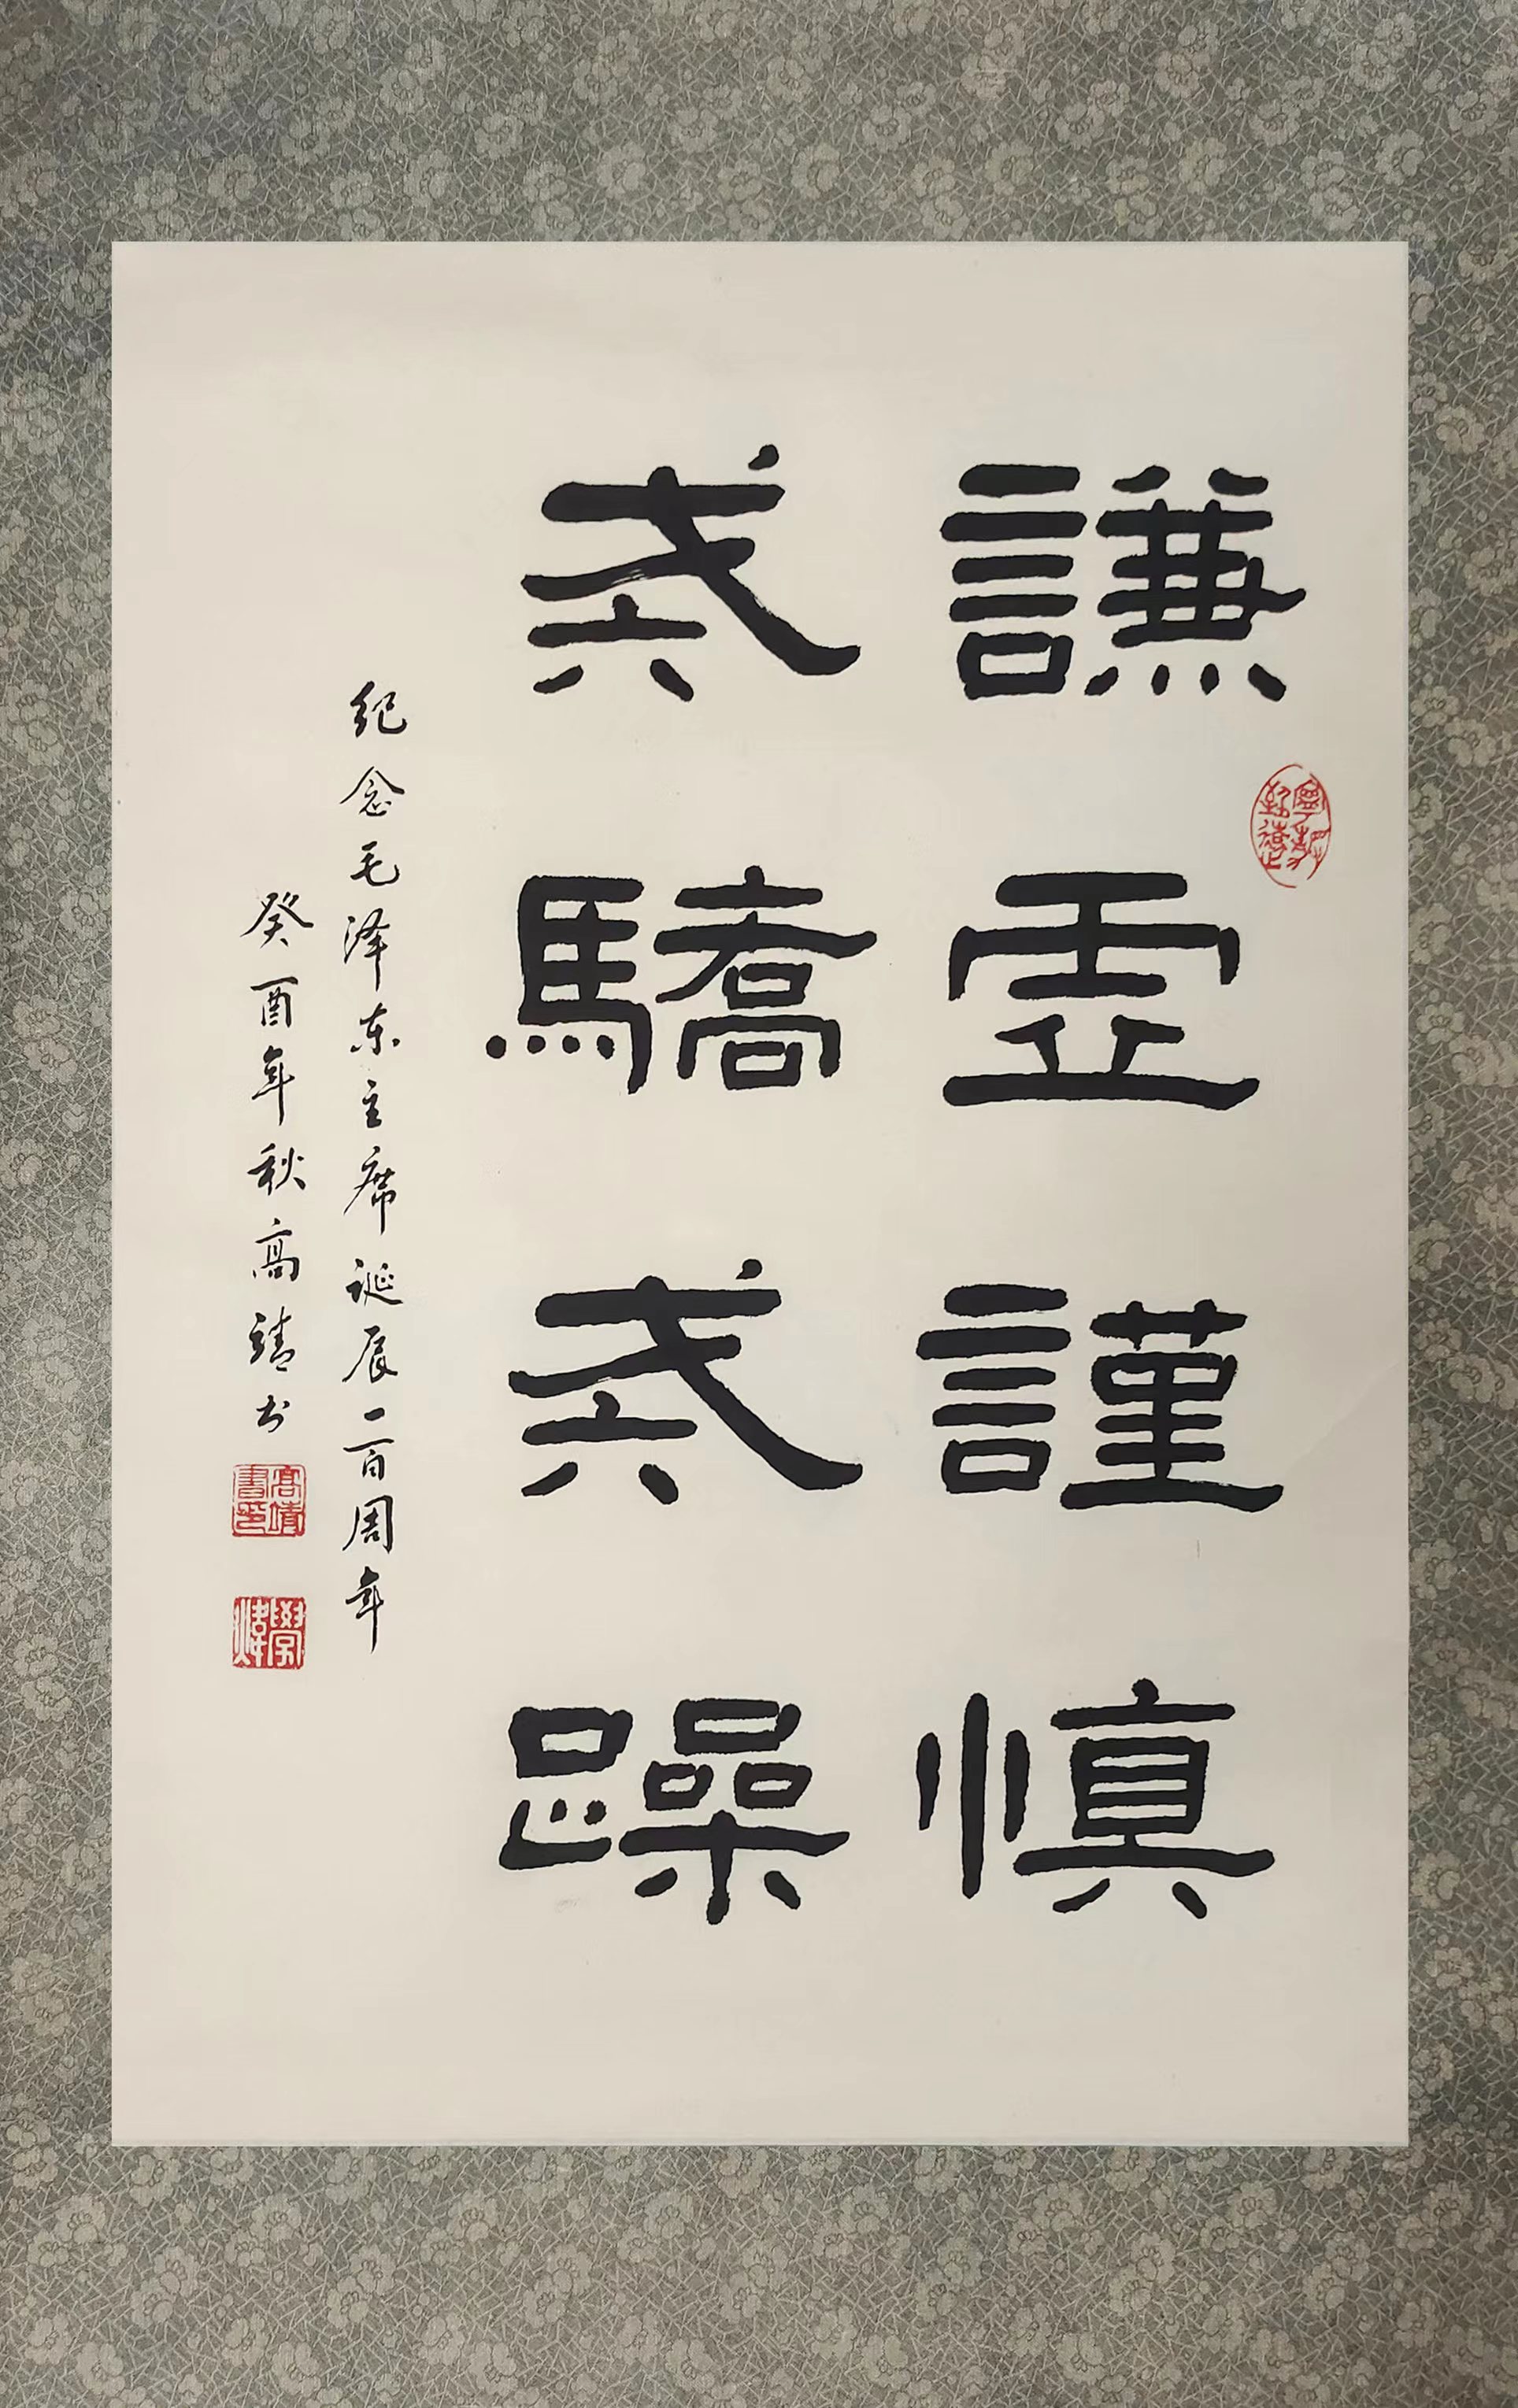 謙虛謹慎
戒驕戒躁
纪念毛泽东主席诞辰一百周年
癸酉年秋高靖书
寧靜致遠
高靖書印
學煒